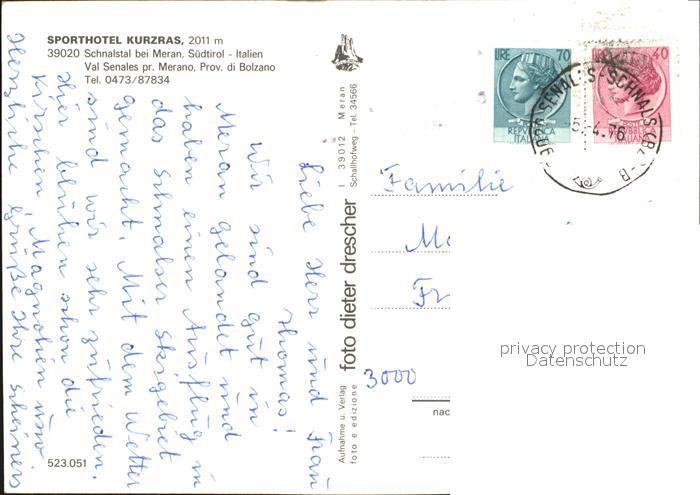 SPORTHOTEL KURZRAS, 2011 m
39020 Schnalstal bei Meran, Südtirol - Italien
Val Senales pr. Merano, Prov. di Bolzano
Tel. 0473/87834
Liebe Herr und Frau
Thomas!
Wir sind gut in
Meran gelandet und
haben einen Ausflug in
das Schnalser Skigebiet
gemacht. Mit dem Wetter
sind wir sehr zufrieden.
Hier blühen schon die
Kirschen, Magnolien usw.
Herzliche Grüße Ihre
523.051
Aufnahme u. Verlag
foto e edizione
foto dieter drescher
I 39012 Meran
Schallhofweg - Tel. 34566
LIRE 70
REPVBBLICA
ITALIANA
40
REPVBBLICA
ITALIANA
SENALES - SCHNALS (BZ)
Familie
3000
nac
privacy protection
Datenschutz